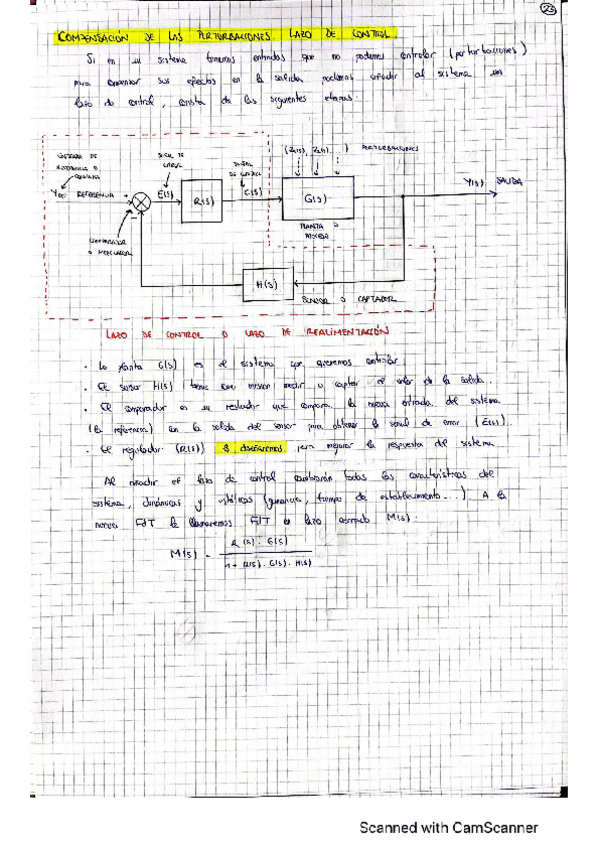 23
COMPENSACIÓN DE LAS PERTURBACIONES. LAZO DE CONTROL.
Si en un sistema tenemos entradas que no podemos controlar (perturbaciones)
para compensar sus efectos en la salida podemos añadir al sistema un
lazo de control, consta de las siguientes etapas:
(Z1(s), Z2(s), ...) PERTURBACIONES
ENTRADA DE
REFERENCIA O
CONSIGNA
SEÑAL DE
ERROR
SEÑAL
DE CONTROL
REFERENCIA
+
E(s)
R(s)
C(s)
G(s)
Y(s) SALIDA
-
PLANTA O
PROCESO
COMPARADOR
O
H(s)
SENSOR O CAPTADOR
LAZO DE CONTROL O LAZO DE REALIMENTACIÓN
· La planta G(s) es el sistema que queremos controlar.
· El sensor H(s) tiene como misión medir o captar el valor de la salida.
· El comparador es un restador que compara la nueva entrada del sistema
(la referencia) con la salida del sensor para obtener la señal de error (E(s)).
· El regulador (R(s)) lo diseñaremos para mejorar la respuesta del sistema.
Al añadir el lazo de control cambiarán todas las características del
sistema, dinámicas y estáticas (ganancia, tiempo de establecimiento...). A la
nueva FdT la llamaremos FdT en lazo cerrado M(s):
M(s) = R(s) · G(s)
1 + R(s) · G(s) · H(s)
Scanned with CamScanner